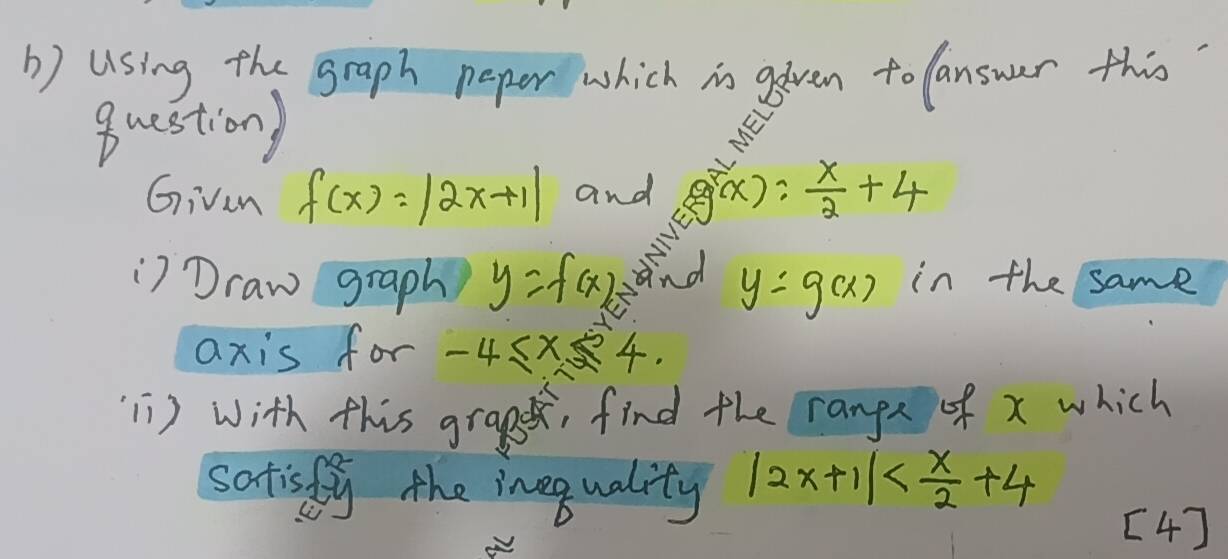 b) Using the graph paper which is given to (answer this
question)
Given f(x) = |2x+1| and g(x) = x/2 + 4
i) Draw graph y = f(x) and y = g(x) in the same
axis for -4 ≤ x ≤ 4.
ii) With this graph, find the range of x which
satisfy the inequality |2x+1| < x/2 + 4
[4]